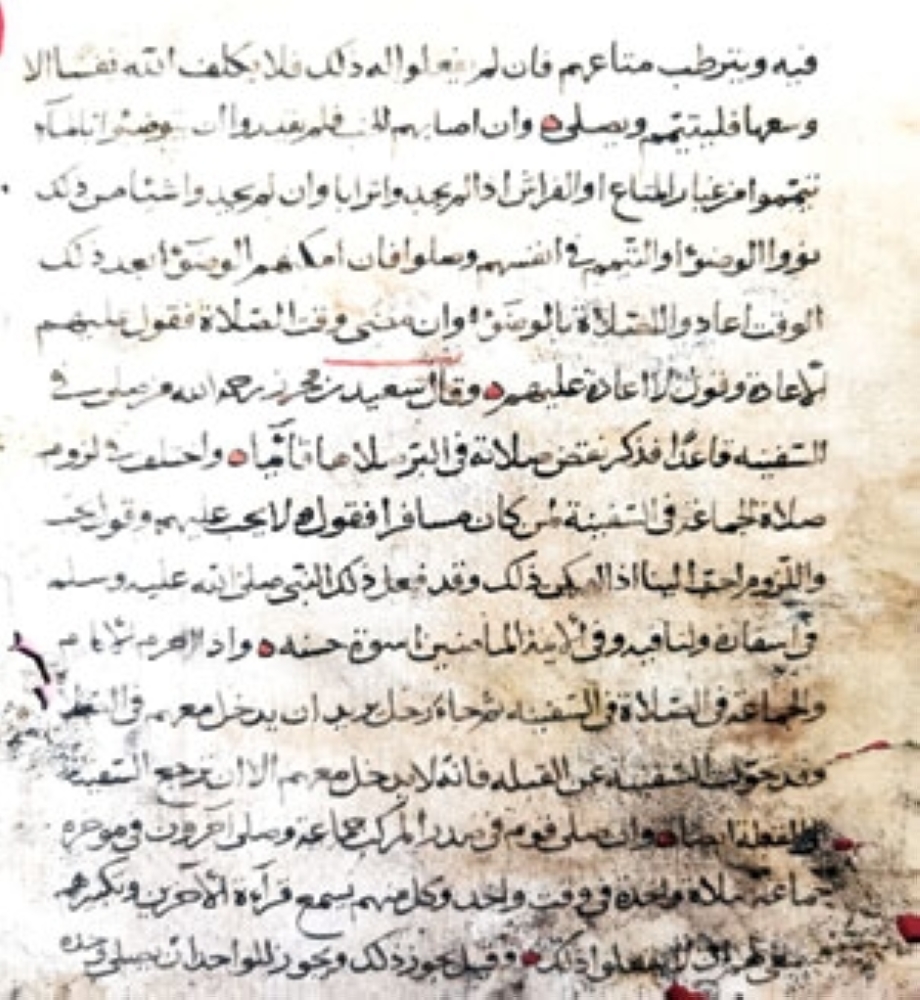 فيه ويترطب متاعهم فان لم يفعلوا له ذلك فلا يكلف الله نفسا الا
وسعها فليتيمم ويصلي وان اصابهم فلم يقدروا ان يتوضئوا
تيمموا من غبار المتاع او الفراش اذا لم يجدوا ترابا وان لم يجدوا شيئا من ذلك
نووا الوضوء او التيمم في انفسهم وصلوا فان امكنهم الوضوء بعد ذلك
الوقت اعادوا الصلاة بالوضوء وان مضى وقت الصلاة فقول عليهم
الاعادة وقول لا اعادة عليهم وقال سعيد بن محرز رحمه الله من صلى في
السفينه قاعدا فذكر نقض صلاته في البر صلاها قائما واختلف في لزوم
صلاة الجماعة في السفينة لمن كان مسافرا فقول لا يجب عليهم وقول يجب
واللزوم احب الينا اذا امكن ذلك وقد فعل ذلك النبي صلى الله عليه وسلم
في اسفاره ولنا فيه وفي الايمة الماضين اسوة حسنه واذا احرم الامام
والجماعة في الصلاة في السفينه ثم جاء رجل يريد ان يدخل معهم في
وقد حولت السفينة عن القبله فانه لا يدخل معهم الا ان ترجع السفينة
وان صلى قوم في صدر المركب جماعة وصلى آخرون في موخره
جماعة صلاة واحدة في وقت واحد وكل منهم يسمع قراءة الآخرين
ذلك وقيل يجوز ذلك ويجوز للواحد ان يصلي